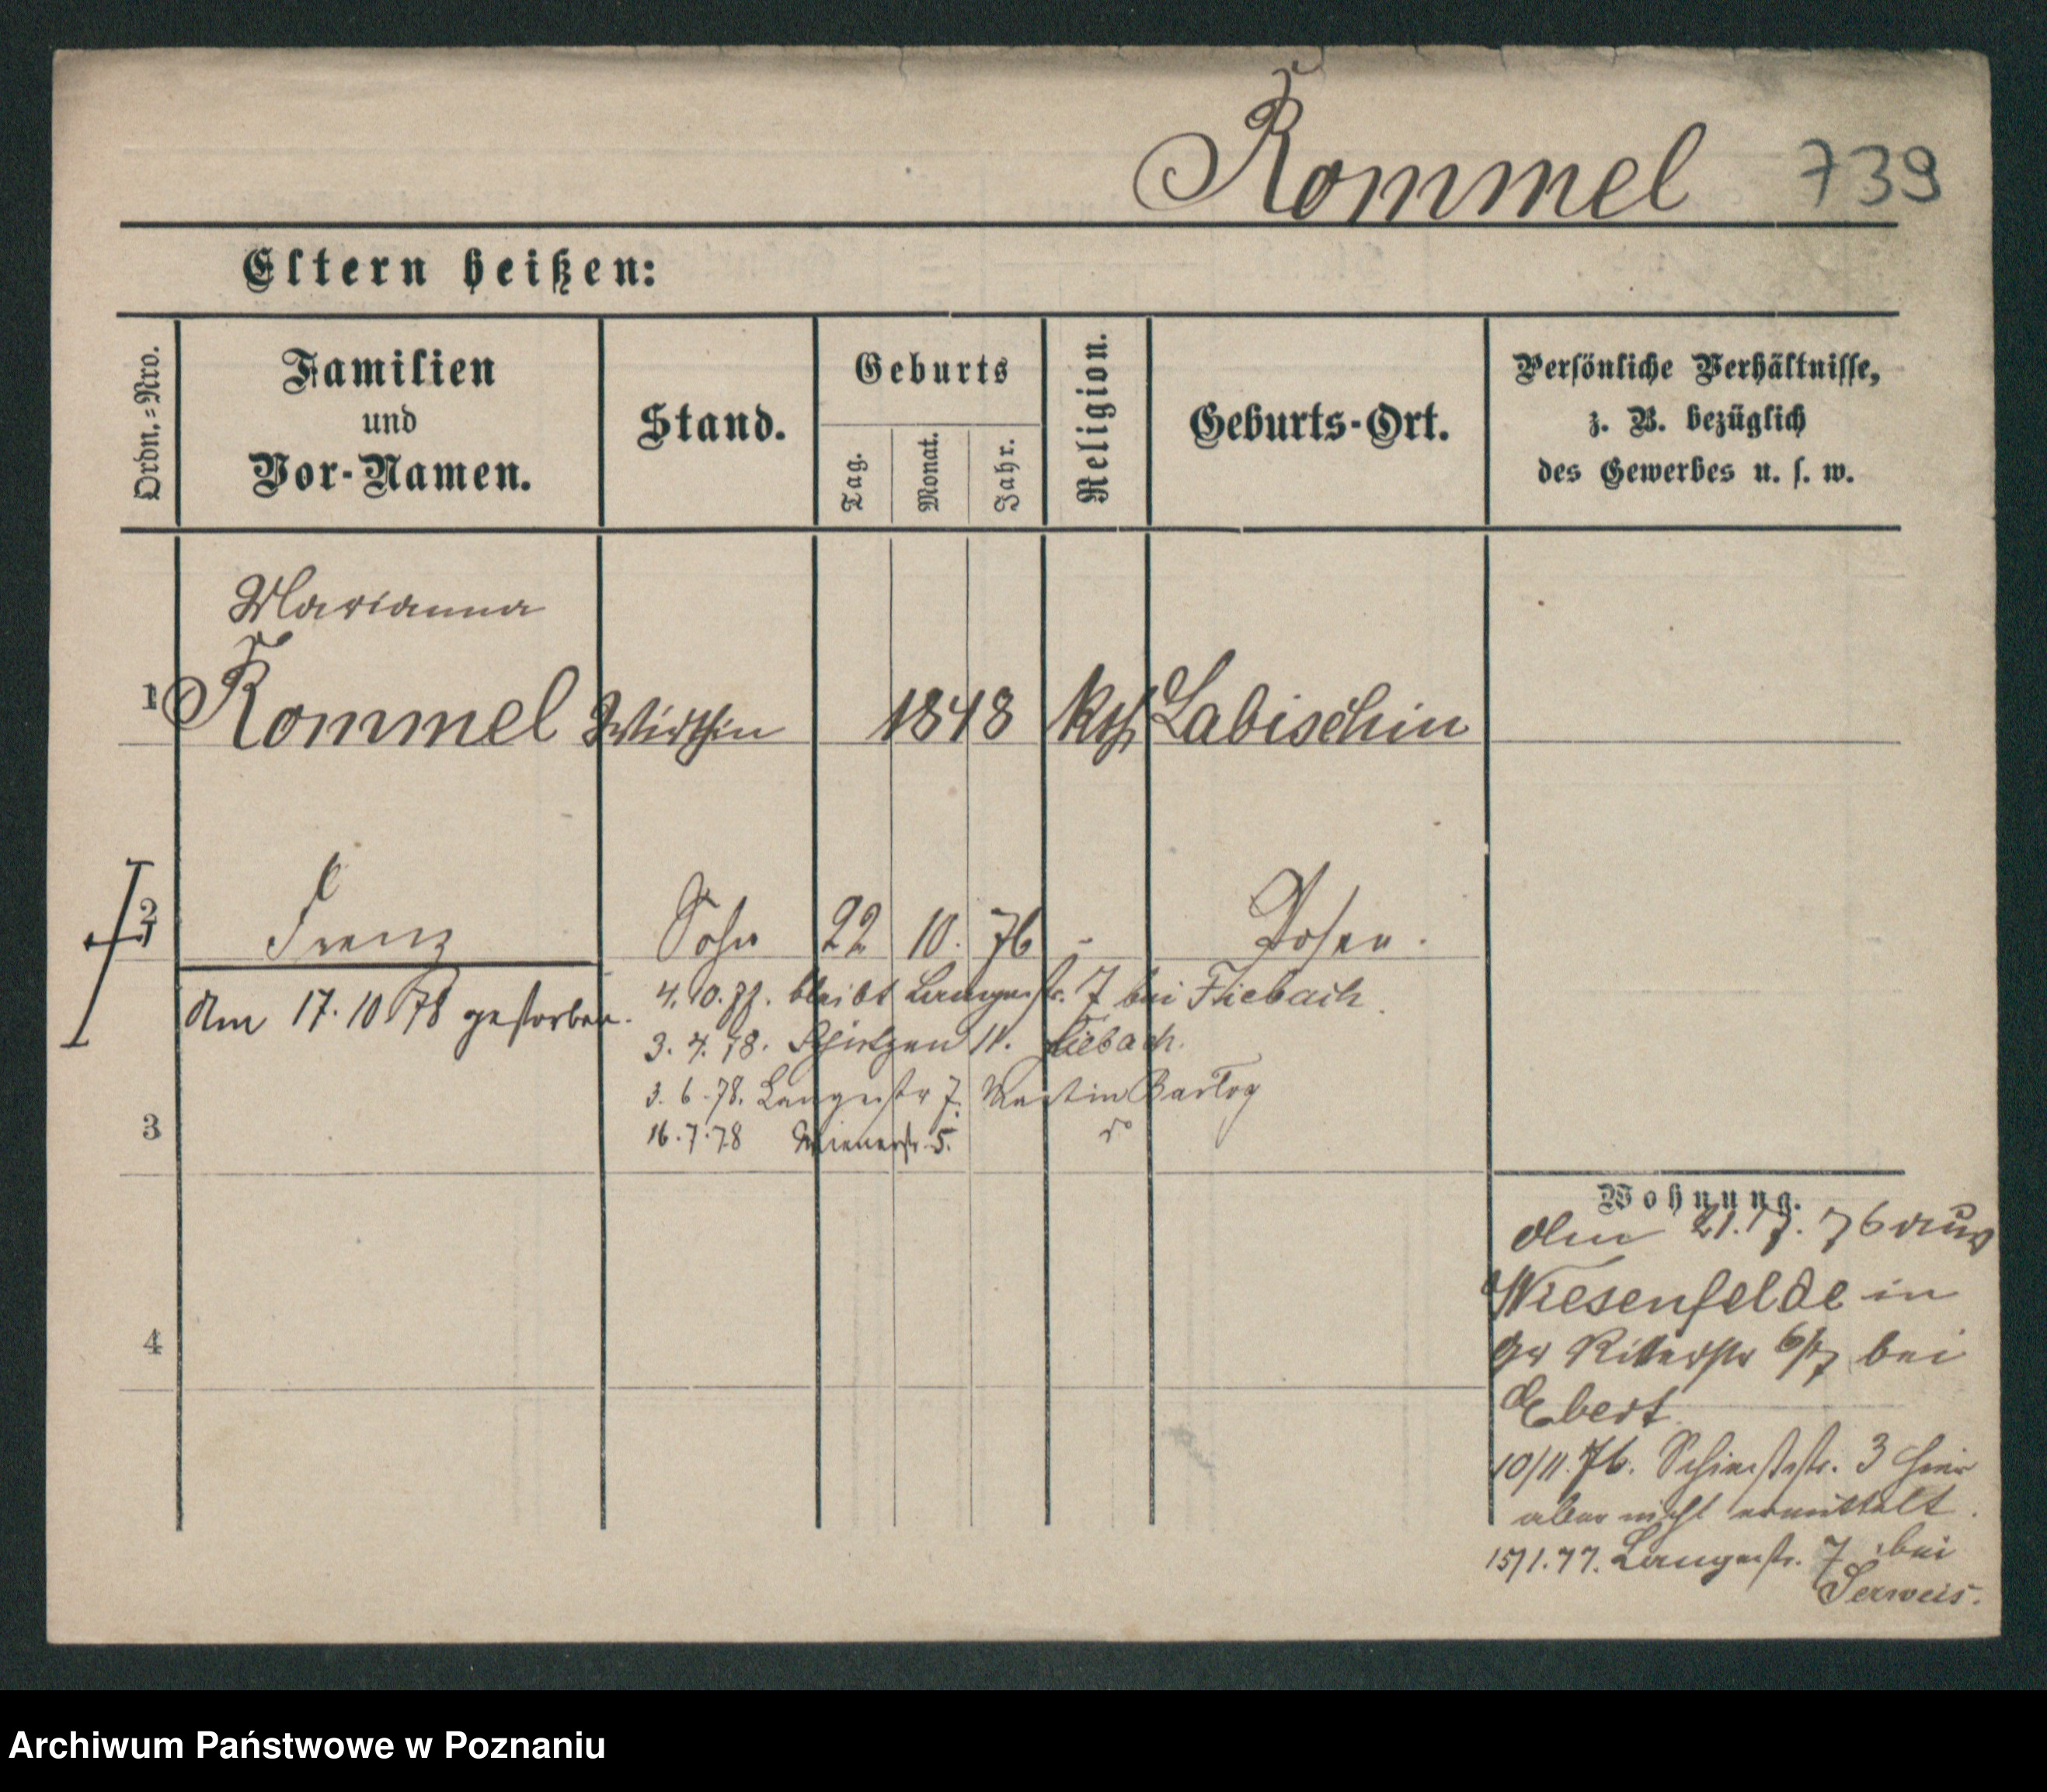 Rommel 739
Eltern heißen:
Ordn.=Nro.
Familien
und
Vor-Namen.
Stand.
Geburts
Tag. Monat. Jahr.
Religion.
Geburts-Ort.
Persönliche Verhältnisse,
z. B. bezüglich
des Gewerbes u. s. w.
Marianna
1 Rommel Wirthin 1848 kth Labischin
2 Franz Sohn 22 10. 76 - Posen.
Am 17.10 78 gestorben.
4.10.77. bleibt Langestr. 7 bei Fliebach.
3. 4. 78. Schützen 11. Liebach.
3. 6. 78. Langestr 7. Martin Bartog
16.7.78 Wienerstr. 5. do
3
Wohnung.
Am 21. 76 aus
Wiesenfelde in
Gr Ritterstr 6/7 bei
Ebert.
4
10/11. 76. 3 hier
aber nicht ermittelt.
15/1. 77. Langestr. 7 bei
Serweis.
Archiwum Państwowe w Poznaniu